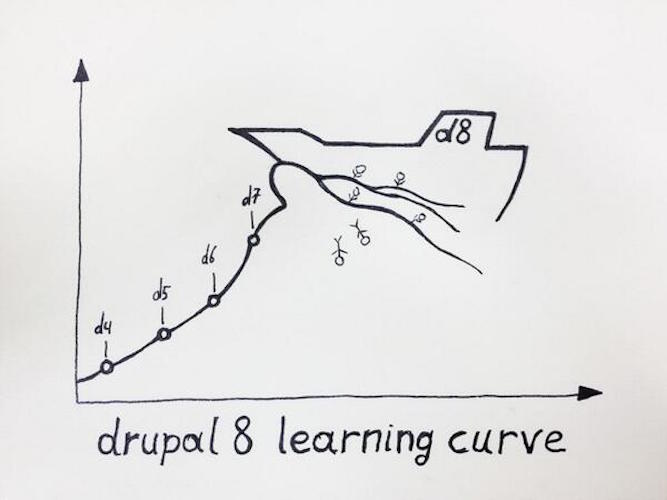 d8
d7
d6
d5
d4
drupal 8 learning curve